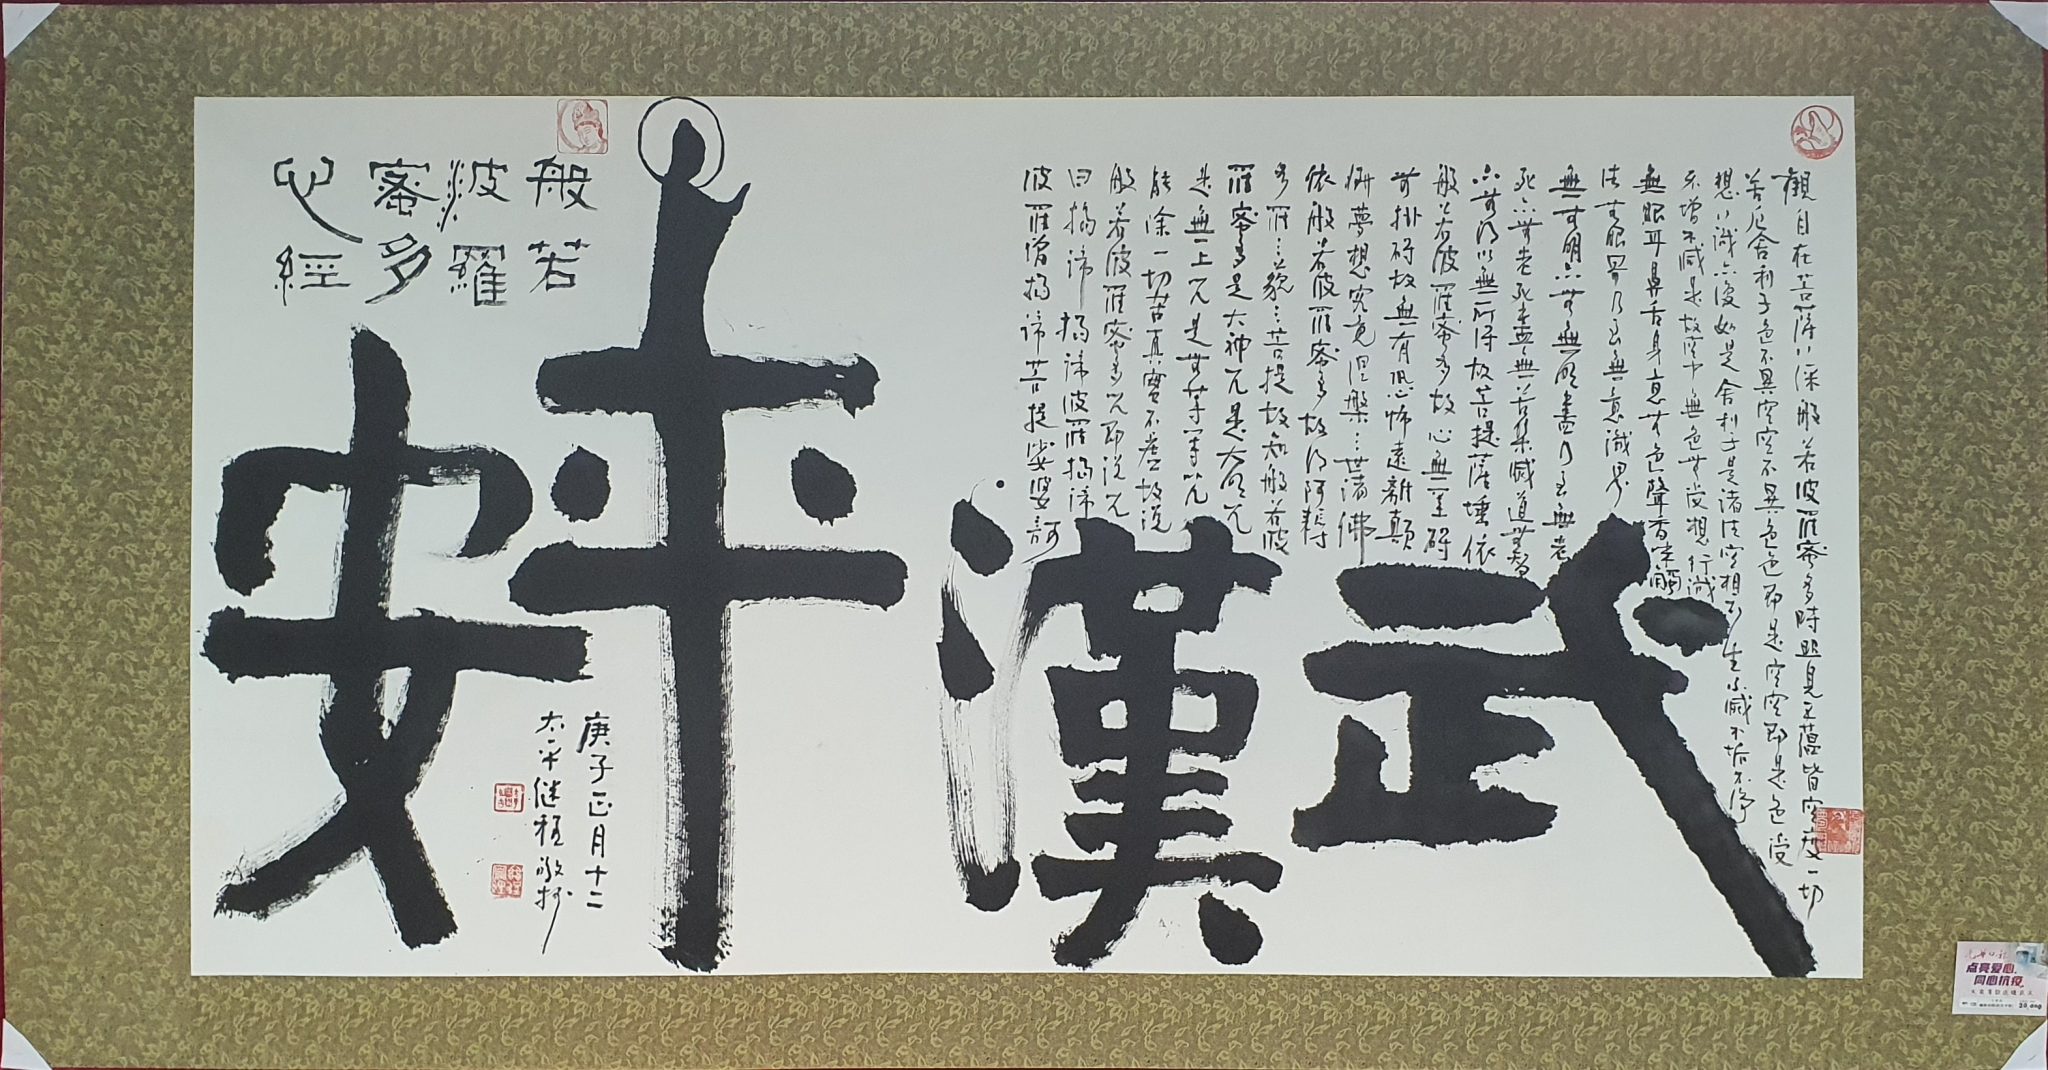 觀自在菩薩行深般若波羅蜜多時照見五蘊皆空度一切
苦厄舍利子色不異空空不異色色即是空空即是色受
想行識亦復如是舍利子是諸法空相不生不滅不垢不淨
不增不減是故空中無色無受想行識
無眼耳鼻舌身意無色聲香味觸
法無眼界乃至無意識界
無無明亦無無明盡乃至無老
死亦無老死盡無苦集滅道無智
亦無得以無所得故菩提薩埵依
般若波羅蜜多故心無罣礙
無掛礙故無有恐怖遠離顛
倒夢想究竟涅槃三世諸佛
依般若波羅蜜多故得阿耨
多羅三藐三菩提故知般若波
羅蜜多是大神咒是大明咒
是無上咒是無等等咒
能除一切苦真實不虛故說
般若波羅蜜多咒即說咒
曰揭諦揭諦波羅揭諦
波羅僧揭諦菩提娑婆訶
武漢平安
般若
波羅
蜜多
心經
庚子正月十二
太平继程敬抄
光华日报
点亮爱心,
同心抗疫,